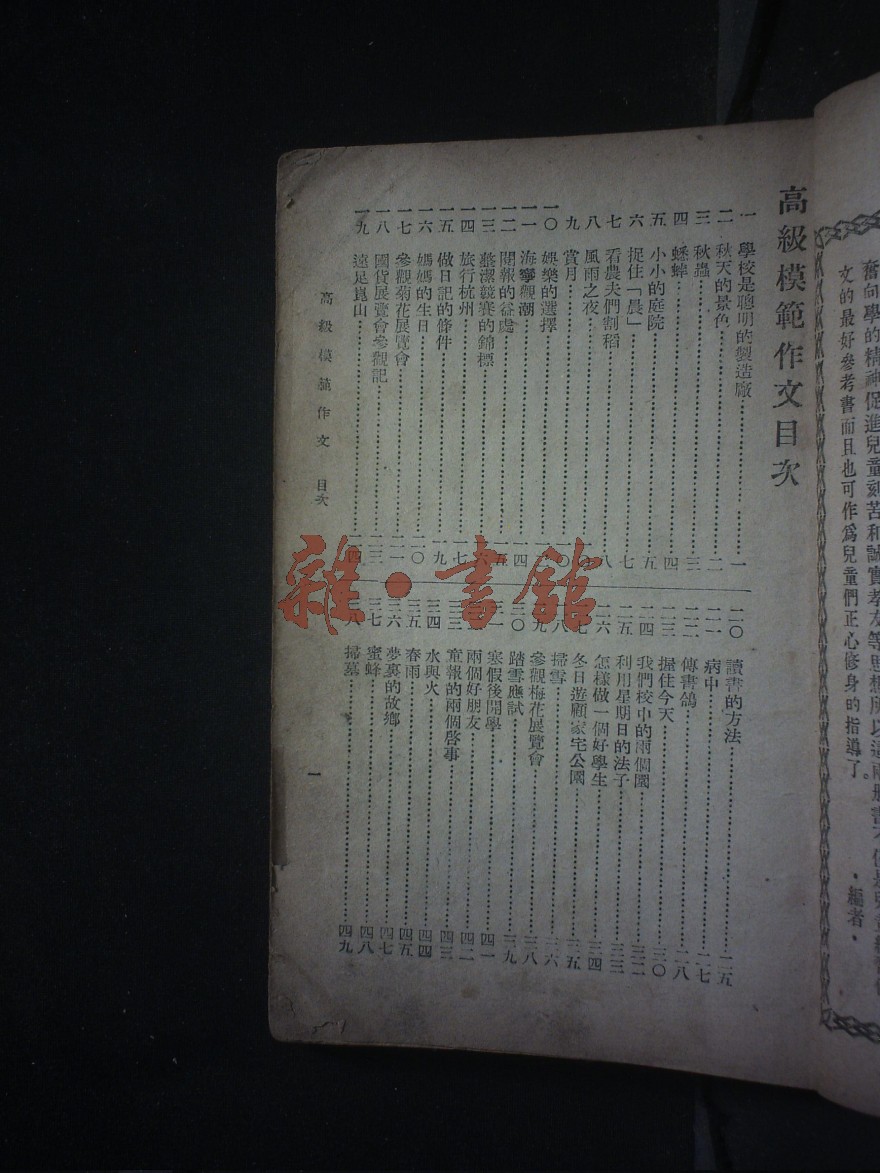 奮向學的精神促進兒童刻苦和誠實孝友等思想所以這兩册書不僅是
文的最好參考書而且也可作爲兒童們正心修身的指導了。
·編者·
高級模範作文目次
一 學校是聰明的製造廠………一
二 秋天的景色………二
三 秋蟲………三
四 蟋蟀………四
五 小小的庭院………五
六 捉住「晨」………七
七 看農夫們割稻………八
八 風雨之夜………
九 賞月………
一〇 娛樂的選擇………
一一 海寧觀潮………一四
一二 閱報的益處………一五
一三 整潔競賽的錦標………一六
一四 旅行杭州………一七
一五 做日記的條件………一九
一六 媽媽的生日………二〇
一七 參觀菊花展覽會………二一
一八 國貨展覽會參觀記………二三
一九 遠足崑山………二四
二〇 讀書的方法………二五
二一 病中………二七
二二 傳書鴿………二八
二三 握住今天………三〇
二四 我們校中的兩個園………三二
二五 利用星期日的法子………三三
二六 怎樣做一個好學生………三四
二七 冬日遊顧家宅公園………三五
二八 掃雪………三六
二九 參觀梅花展覽會………三八
三〇 踏雪應試………三九
三一 寒假後開學………四一
三二 兩個好朋友………四二
三三 童報的兩個啓事………四三
三四 水與火………四四
三五 春雨………四五
三六 夢裏的故鄉………四七
三七 蜜蜂………四八
三八 掃墓………四九
高級模範作文 目次
一
雜·書館